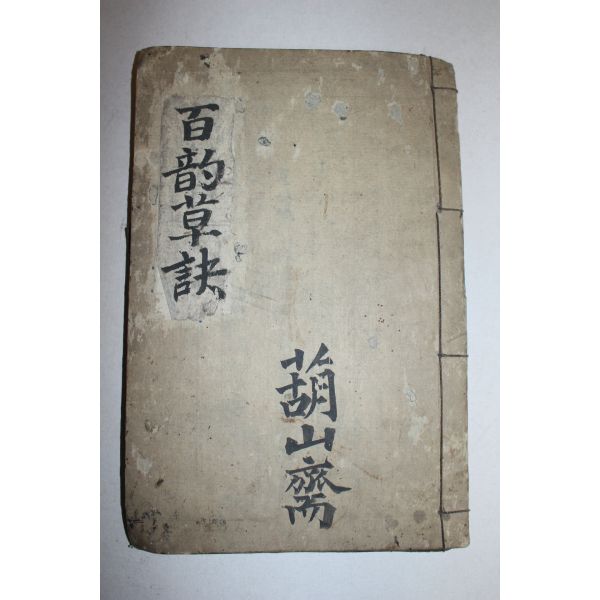 百韵草訣
葫山齋